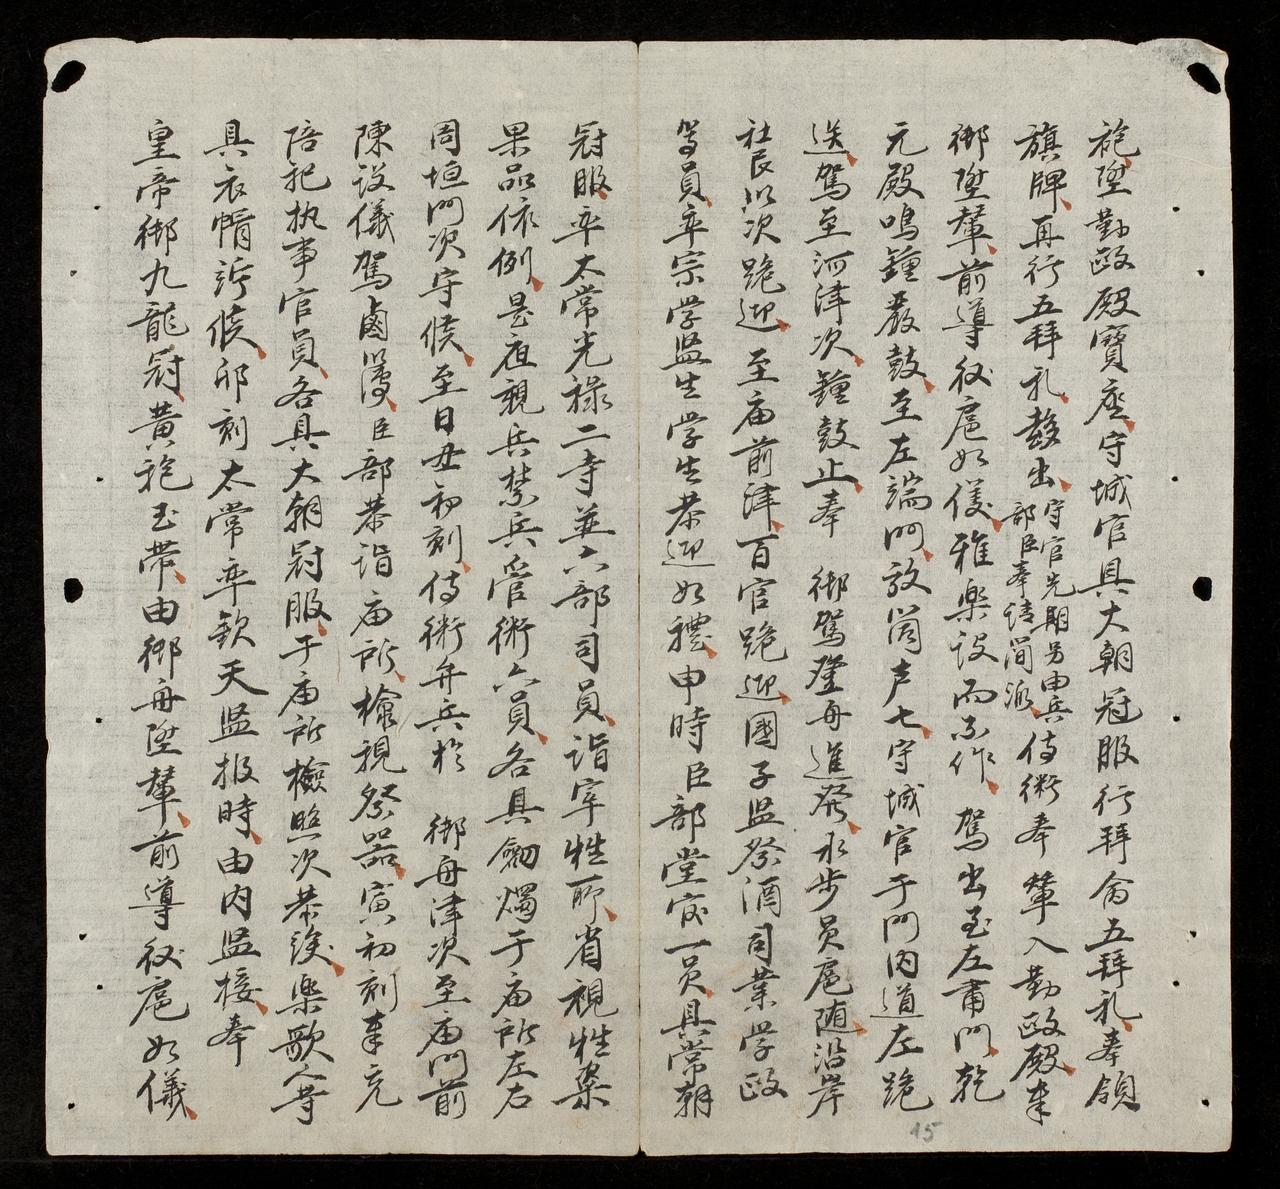 袍陞勤政殿寶座守城官具大朝冠服行拜命五拜礼奉領
旗牌再行五拜礼趋出守官先期另由兵部臣奉請簡派侍衛奉 輦入勤政殿奉
御陞輦前導役扈如儀雅樂設而不作 駕出至左肅門乾
元殿鳴鐘嚴鼓至左端門放筒声七守城官于門内道左跪
送駕至河津次鐘鼓止奉 御駕登舟進發水步員扈随沿岸
社民以次跪迎至庙前津百官跪迎國子监祭酒司業学政
等員率宗学监生学生恭迎如禮申時臣部堂官一員具常朝
冠服率太常光祿二寺並六部司員詣宰牲所省視牲粢
果品依例是夜親兵禁兵管衛六員各具劍燭于庙所左右
周垣門次守候至日丑初刻侍衛弁兵於 御舟津次至庙門前
陳設儀駕鹵簿臣部恭詣庙所檢視祭器寅初刻奉充
陪祀执事官員各具大朝冠服于庙所檢照次恭候樂歌人等
具衣帽許候卯刻太常率欽天监报時由内监接奉
皇帝御九龍冠黄袍玉带由御舟陞輦前導役扈如儀
15